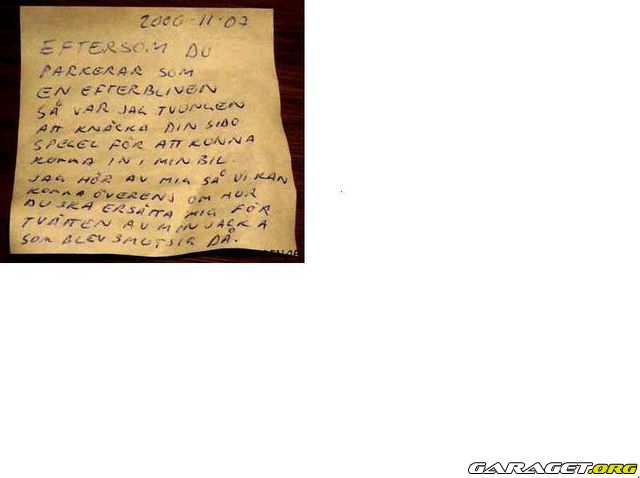 2006-11-07
EFTERSOM DU
PARKERAR SOM
EN EFTERBLIVEN
SÅ VAR JAG TVUNGEN
ATT KNÄCKA DIN SIDO
SPEGEL FÖR ATT KUNNA
KOMMA IN I MIN BIL.
JAG HÖR AV MIG SÅ VI KAN
KOMMA ÖVERENS OM HUR
DU SKA ERSÄTTA MIG FÖR
TVÄTTEN AV MIN JACKA
SOM BLEV SMUTSIG DÅ.
GARAGET.ORG